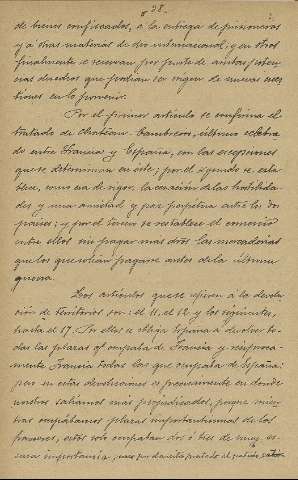 28.
de bienes confiscados, á la entrega de prisioneros
y á otras materias de dro internacional; y en otros
finalmente se reservan por parte de ambas poten
cias derechos que podian ser origen de nuevas cues
tiones en lo porvenir.
Por el primer articulo se confirma el
tratado de Chateau-Cambresis, último celebra
do entre Francia y España, con las excepciones
que se determinan en este; por el segundo se esta
blece, como era de rigor, la cesación de las hostilida
des y una amistad y paz perpetua entre los dos
paises; y por el tercero se restablece el comercio
entre ellos sin pagar mas dros las mercaderias
que los que solian pagarse antes de la última
guerra.
Los articulos que se refieren á la devolu
ción de territorios son: el 11, el 12 y los siguientes,
hasta el 17. Por ellos se obliga España á devolver to
das las plazas qe ocupaba de Francia y reciproca
mente Francia todas las que ocupaba de España:
pero en estas devoluciones es precisamente en donde
nosotros salimos mas perjudicados, porque mien
tras ocupábamos plazas importantisimas de los
franceses, estos solo ocupaban dos ó tres de muy es
casa importancia, pues